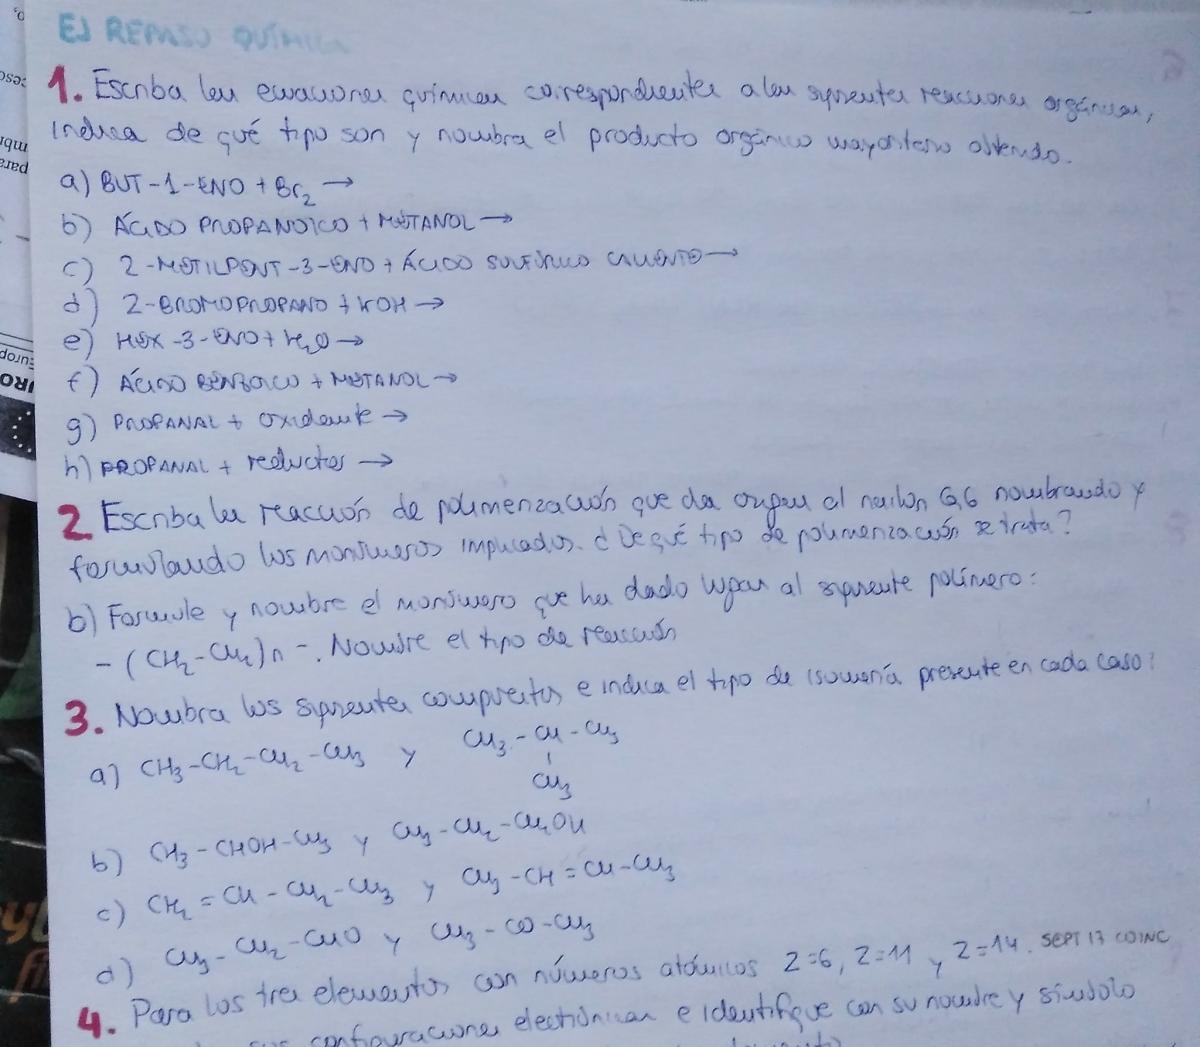 EJ REPASO QUÍMICA
1. Escriba las ecuaciones químicas correspondientes a las siguientes reacciones orgánicas,
indica de qué tipo son y nombra el producto orgánico mayoritario obtenido.
a) BUT-1-ENO + Br2 →
b) ÁCIDO PROPANOICO + METANOL →
c) 2-METILPENT-3-ENO + ÁCIDO SULFÚRICO CALIENTE →
d) 2-BROMOPROPANO + KOH →
e) HEX-3-ENO + H2O →
f) ÁCIDO BENZOICO + METANOL →
g) PROPANAL + oxidante →
h) PROPANAL + reductor →
2. Escriba la reacción de polimerización que da origen al nailon 6,6 nombrando y
formulando los monómeros implicados. ¿De qué tipo de polimerización se trata?
b) Formule y nombre el monómero que ha dado lugar al siguiente polímero:
-(CH2-CH2)n-. Nombre el tipo de reacción
3. Nombra los siguientes compuestos e indica el tipo de isomería presente en cada caso:
a) CH3-CH2-CH2-CH3 y CH3-CH-CH3
CH3
b) CH3-CHOH-CH3 y CH3-CH2-CH2OH
c) CH2=CH-CH2-CH3 y CH3-CH=CH-CH3
d) CH3-CH2-CHO y CH3-CO-CH3
4. Para los tres elementos con números atómicos Z=6, Z=11 y Z=14. SEPT 17 COINC
sus configuraciones electrónicas e identifique con su nombre y símbolo